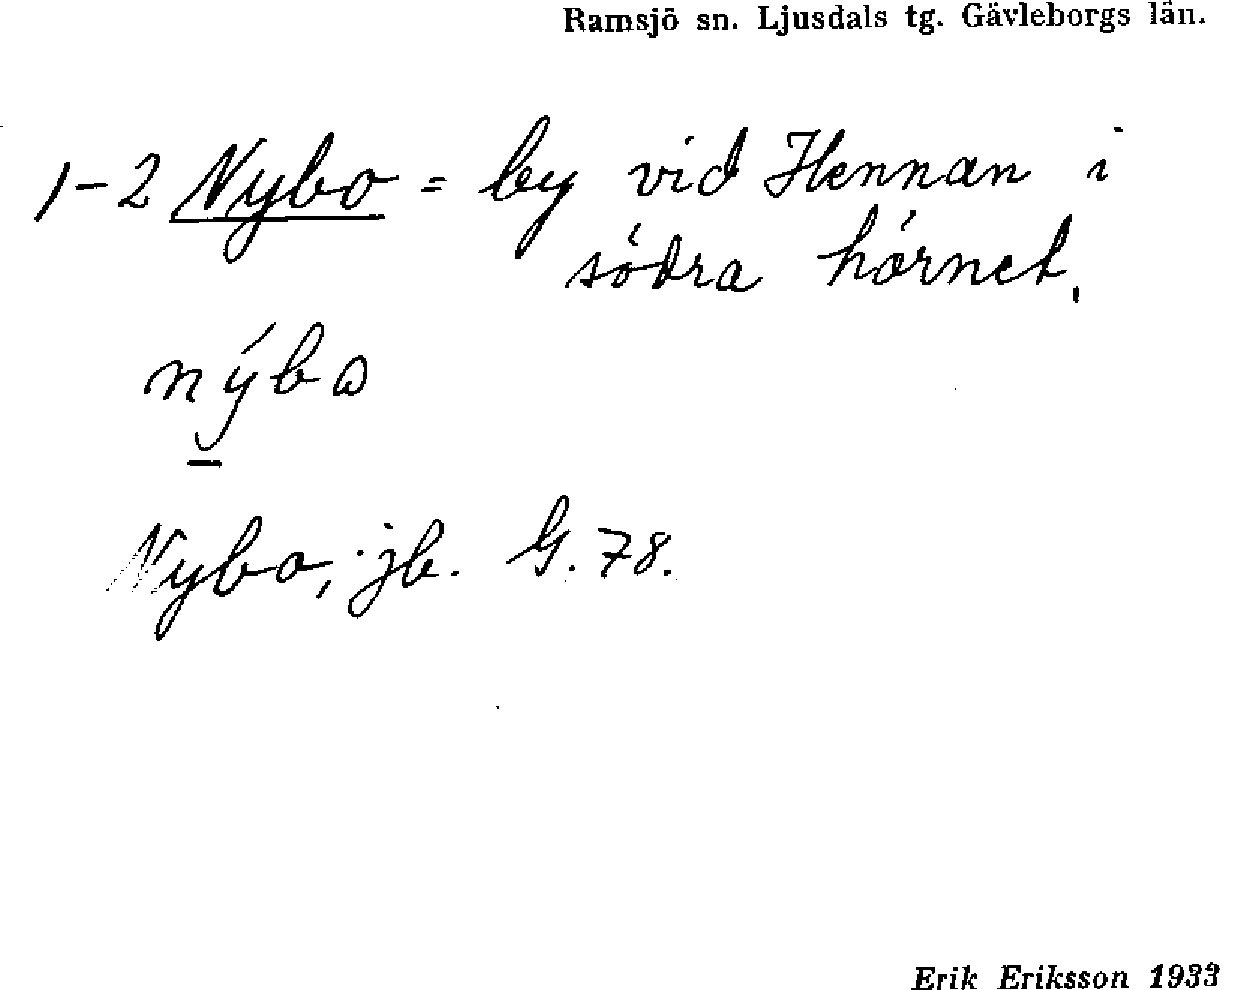 Ramsjö sn. Ljusdals tg. Gävleborgs län.
1-2 Nybo = by vid Hennan i
södra hörnet.
nýbω
Nybo, jb. G. 78.
Erik Eriksson 1933